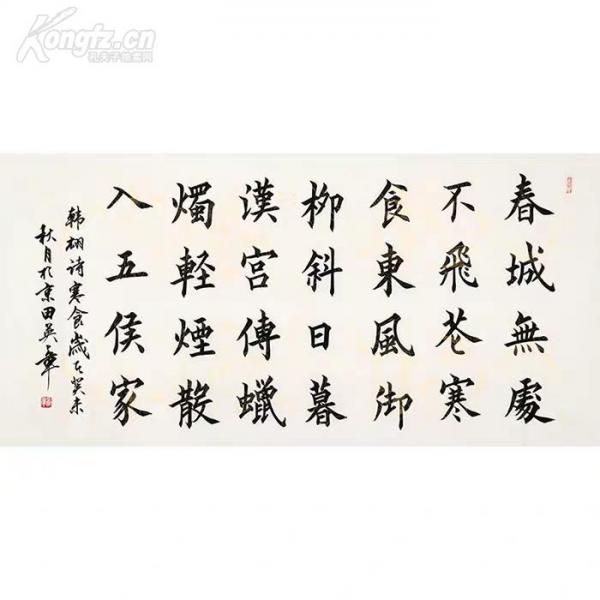 Kongfz.cn
孔夫子拍卖网
春城無處
不飛花寒
食東風御
栁斜日暮
漢宮傳蠟
燭軽煙散
入五侯家
韩翃诗寒食歲在癸未
秋月於京田英章